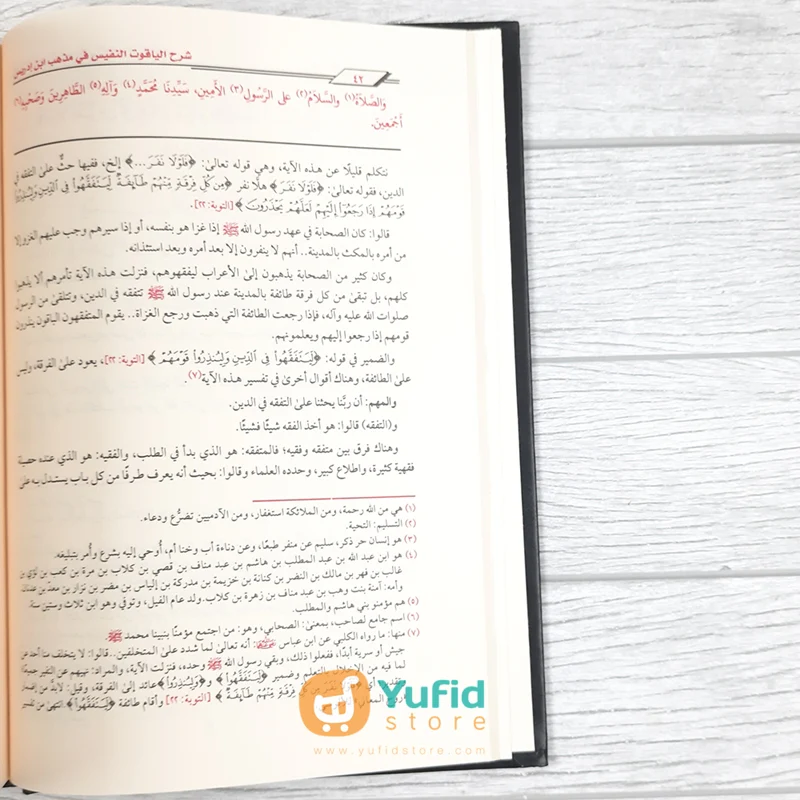 شرح الياقوت النفيس في مذهب ابن إدريس
٤٢
وَالصَّلَاةُ(١) وَالسَّلَامُ(٢) على الرَّسُولِ(٣) الأَمِينِ، سَيِّدِنَا مُحَمَّدٍ(٤) وَآلِهِ(٥) الطَّاهِرِينَ وَصَحْبِهِ(٦)
أَجْمَعِينَ.
نتكلم قليلًا عن هذه الآية، وهي قوله تعالىٰ: ﴿فَلَوْلَا نَفَرَ ...﴾ إلخ، ففيها حثٌّ علىٰ التفقه في
الدين، فقوله تعالىٰ: ﴿فَلَوْلَا نَفَرَ﴾ هلَّا نفر ﴿مِن كُلِّ فِرْقَةٍ مِّنْهُمْ طَآئِفَةٌ لِّيَتَفَقَّهُواْ فِي ٱلدِّينِ وَلِيُنذِرُواْ
قَوْمَهُمْ إِذَا رَجَعُوٓاْ إِلَيْهِمْ لَعَلَّهُمْ يَحْذَرُونَ﴾ [التوبة: ٢٢].
قالوا: كان الصحابة في عهد رسول الله ﷺ إذا غزا هو بنفسه، أو إذا سيرهم وجب عليهم الغزو إلا
من أمره بالمكث بالمدينة.. أنهم لا ينفرون إلا بعد أمره وبعد استئذانه.
وكان كثير من الصحابة يذهبون إلىٰ الأعراب ليفقهوهم، فنزلت هذه الآية تأمرهم ألا يذهبوا
كلهم، بل تبقىٰ من كل فرقة طائفة بالمدينة عند رسول الله ﷺ تتفقه في الدين، وتتلقىٰ من الرسول
صلوات الله عليه وآله، فإذا رجعت الطائفة التي ذهبت ورجع الغزاة.. يقوم المتفقهون الباقون ينذرون
قومهم إذا رجعوا إليهم ويعلمونهم.
والضمير في قوله: ﴿لِّيَتَفَقَّهُواْ فِي ٱلدِّينِ وَلِيُنذِرُواْ قَوْمَهُمْ﴾ [التوبة: ٢٢]، يعود علىٰ الفرقة، وليس
علىٰ الطائفة، وهناك أقوال أخرىٰ في تفسير هذه الآية(٧).
والمهم: أن ربَّنا يحثنا علىٰ التفقه في الدين.
و(التفقه) قالوا: هو أخذ الفقه شيئًا فشيئًا.
وهناك فرق بين متفقه وفقيه؛ فالمتفقه: هو الذي بدأ في الطلب، والفقيه: هو الذي عنده حصيلة
فقهية كثيرة، واطلاع كبير، وحدده العلماء وقالوا: بحيث أنه يعرف طرفًا من كل باب يستدل به علىٰ
(١) هي من الله رحمة، ومن الملائكة استغفار، ومن الآدميين تضرُّع ودعاء.
(٢) التسليم: التحية.
(٣) هو إنسان حر ذكر، سليم عن منفر طبعًا، وعن دناءة أب وخنا أم، أُوحي إليه بشرع وأُمر بتبليغه.
(٤) هو ابن عبد الله بن عبد المطلب بن هاشم بن عبد مناف بن قصي بن كلاب بن مرة بن كعب بن لؤي بن
غالب بن فهر بن مالك بن النضر بن كنانة بن خزيمة بن مدركة بن إلياس بن مضر بن نزار بن معد بن عدنان
وأمه: آمنة بنت وهب بن عبد مناف بن زهرة بن كلاب. ولد عام الفيل، وتوفي وهو ابن ثلاث وستين سنة.
(٥) هم مؤمنو بني هاشم والمطلب.
(٦) اسم جامع لصاحب، بمعنىٰ: الصحابي، وهو: من اجتمع مؤمنًا بنبينا محمد ﷺ
(٧) منها: ما رواه الكلبي عن ابن عباس أنه تعالىٰ لما شدد علىٰ المتخلفين.. قالوا: لا يتخلف منا أحد عن
جيش أو سرية أبدًا، ففعلوا ذلك، وبقي رسول الله ﷺ وحده، فنزلت الآية، والمراد: نهيهم عن النفير جميعًا
لما فيه من الإخلال بالتعلم وضمير ﴿لِّيَتَفَقَّهُواْ﴾ و﴿وَلِيُنذِرُواْ﴾ عائد إلىٰ الفرقة، وقيل: لابد من إضمار
فِرْقَةٍ مِّنْهُمْ طَآئِفَةٌ﴾ [التوبة: ٢٢] وأقام طائفة ﴿لِّيَتَفَقَّهُواْ﴾ انتهىٰ من تفسير
Yufid
store
www.yufidstore.com